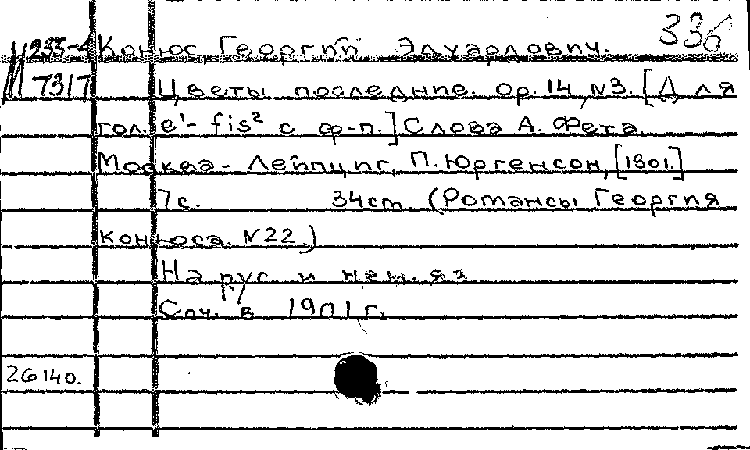 336
М 235-4 Конюс, Георгий Эдуардович.
7317 Цветы последние. Ор. 14, N3. [Для
гол. e¹- fis² с ф-п.] Слова А. Фета.
Москва - Лейпциг, П. Юргенсон, [1901.]
7с. 34ст. (Романсы Георгия
Конюса. N22.)
На рус. и нем. яз.
Соч. в 1901 г.
26140.